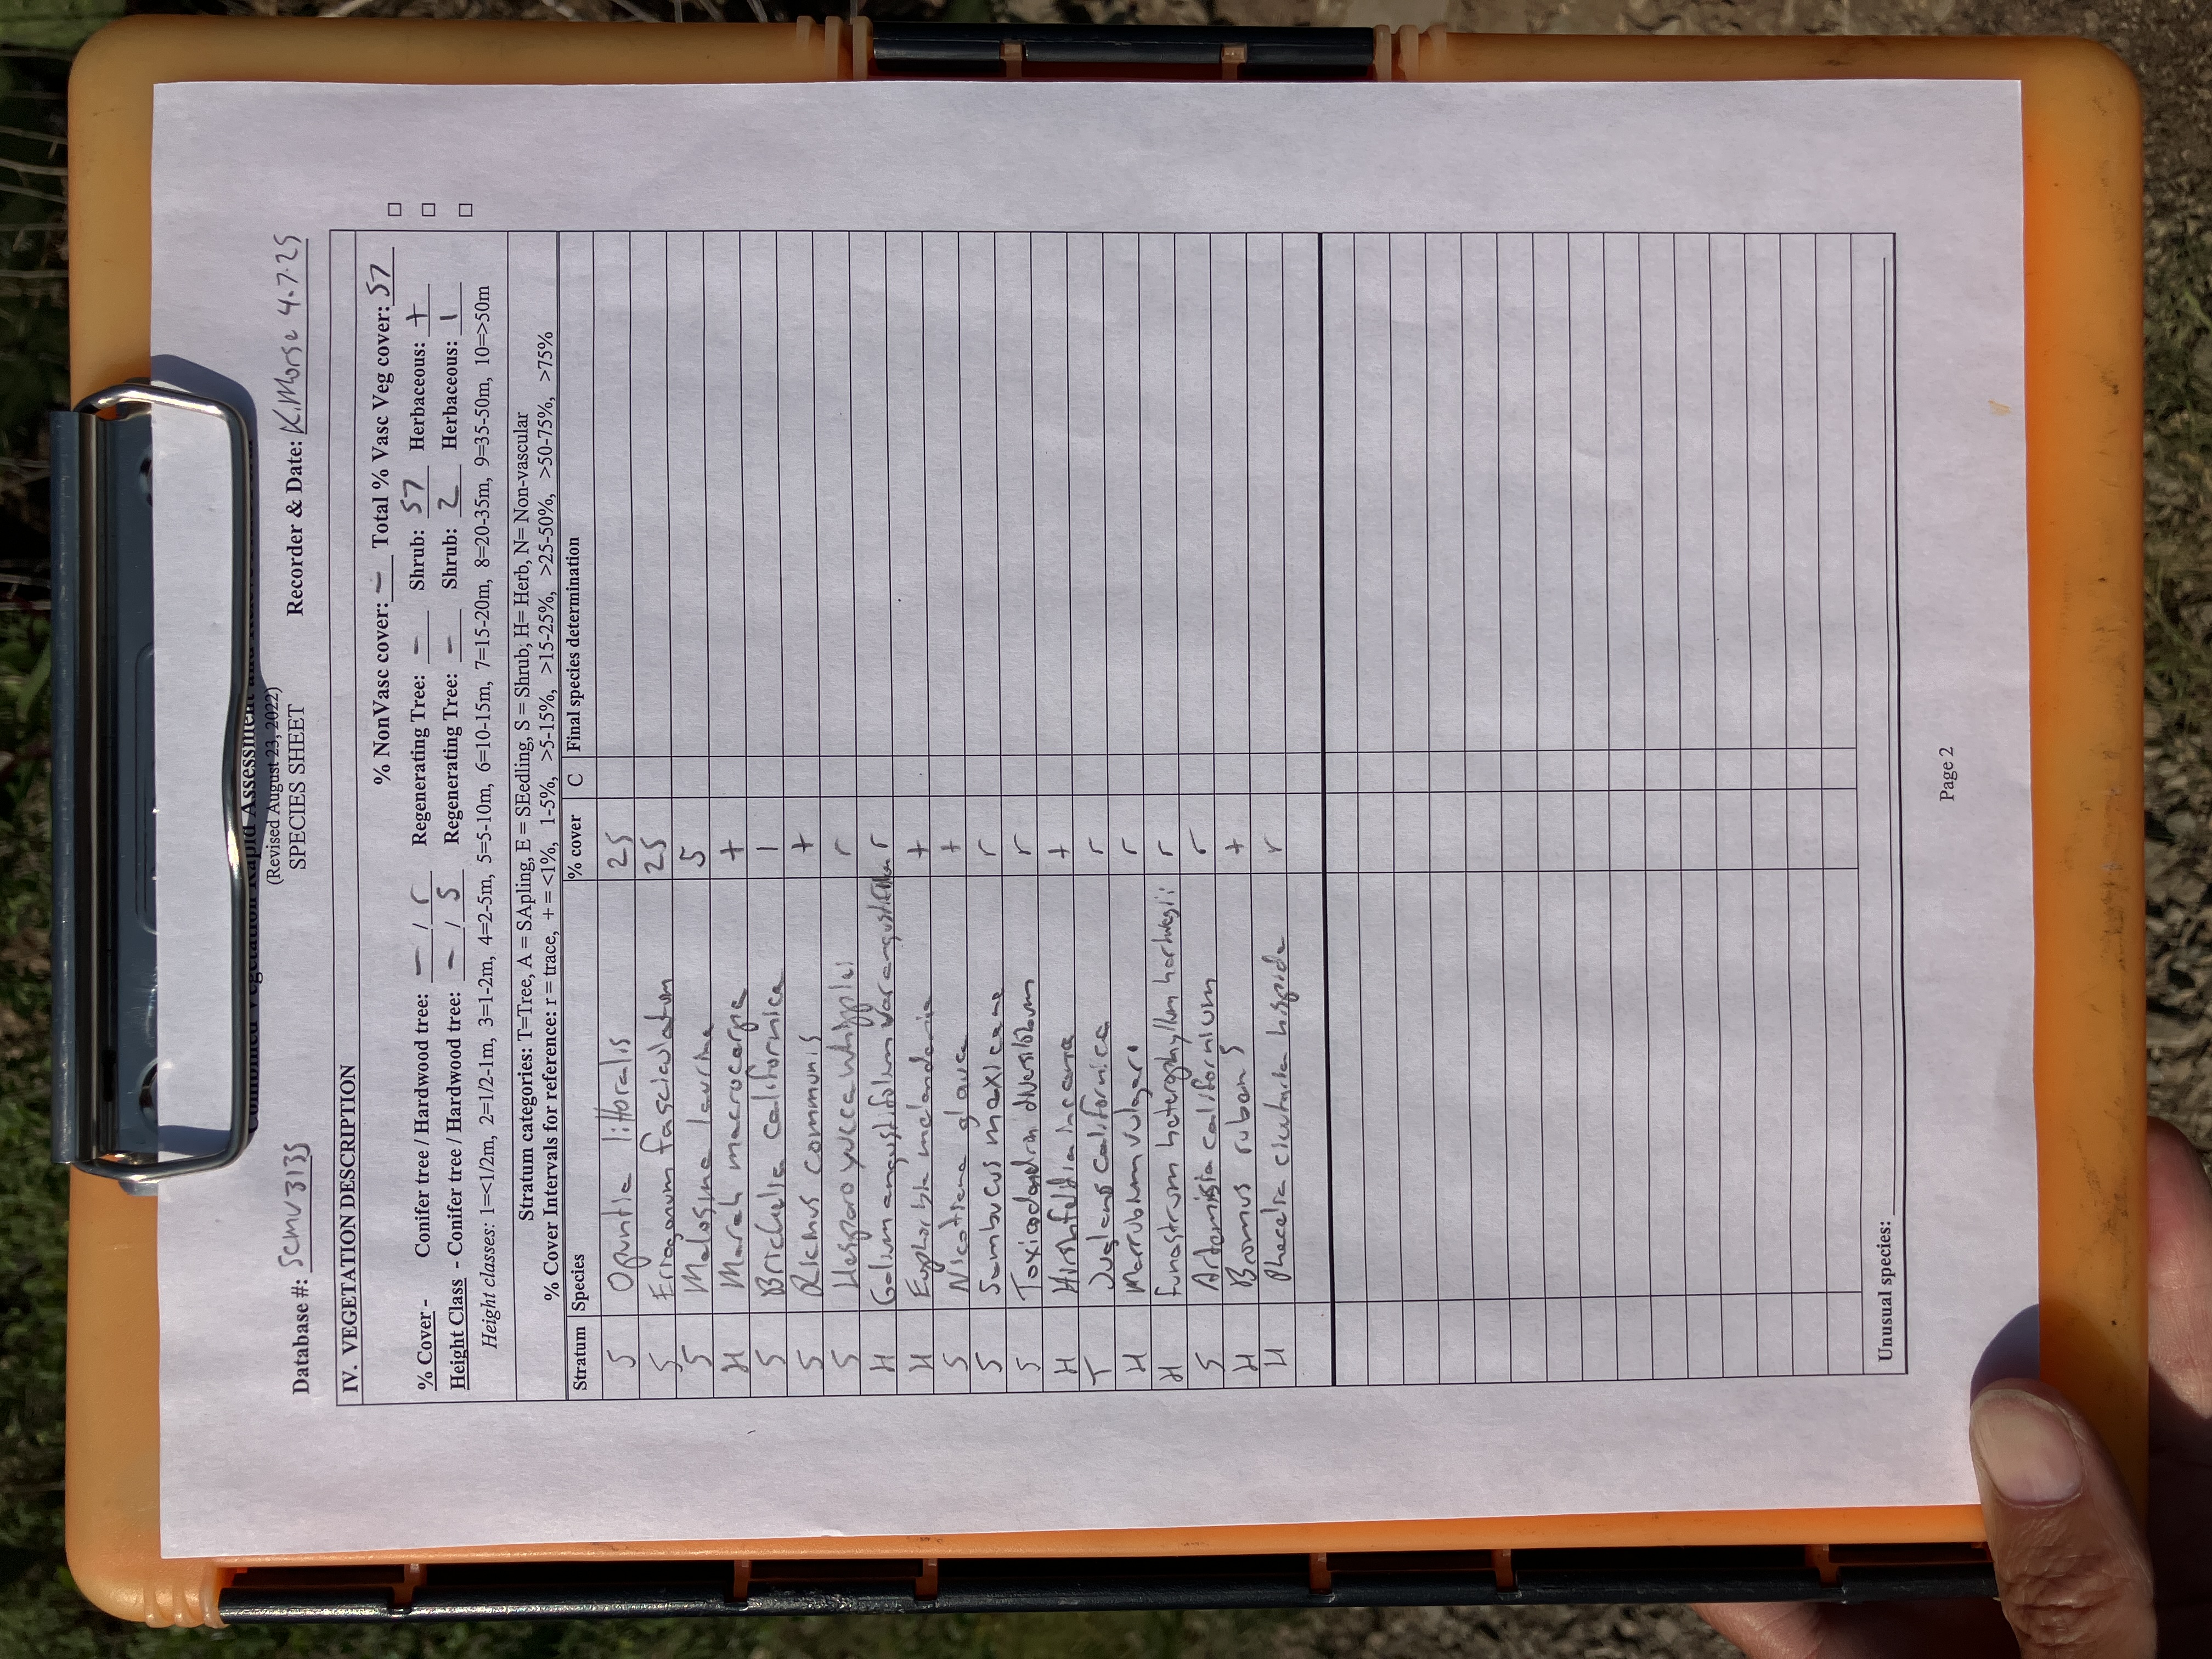 Combined Vegetation Rapid Assessment and
(Revised August 23, 2022)
SPECIES SHEET
Database #: SCMV3135 Recorder & Date: K.Morse 4.7.25
IV. VEGETATION DESCRIPTION
% NonVasc cover: — Total % Vasc Veg cover: 57 □
% Cover - Conifer tree / Hardwood tree: — / r Regenerating Tree: — Shrub: 57 Herbaceous: + □
Height Class - Conifer tree / Hardwood tree: — / 5 Regenerating Tree: — Shrub: 2 Herbaceous: 1 □
Height classes: 1=<1/2m, 2=1/2-1m, 3=1-2m, 4=2-5m, 5=5-10m, 6=10-15m, 7=15-20m, 8=20-35m, 9=35-50m, 10=>50m
Stratum categories: T=Tree, A = SApling, E = SEedling, S = Shrub, H= Herb, N= Non-vascular
% Cover Intervals for reference: r = trace, + = <1%, 1-5%, >5-15%, >15-25%, >25-50%, >50-75%, >75%
Stratum Species % cover C Final species determination
S Opuntia littoralis 25
S Eriogonum fasciculatum 25
S Malosma laurina 5
H Marah macrocarpa +
S Brickellia californica 1
S Ricinus communis +
S Hesperoyucca whipplei r
H Galium angustifolium var angustifolium r
H Euphorbia melandenia +
S Nicotiana glauca +
S Sambucus mexicana r
S Toxicodendron diversilobum r
H Hirshfeldia incana +
T Juglans californica r
H Marrubium vulgare r
H funastrum heterophyllum hartwegii r
S Artemisia californium r
H Bromus rubens +
H Phacelia cicutaria hispida r
Unusual species:
Page 2